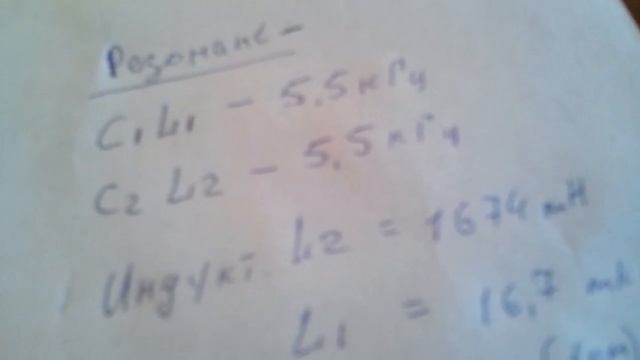 Резонанс -
C1 L1 - 5.5 кГц
C2 L2 - 5.5 кГц
Индукт. L2 = 1674 mH
L1 = 16,7